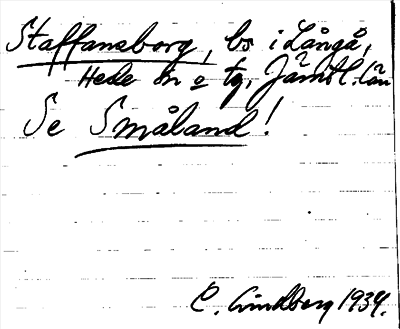 Staffansborg, bs i Långå,
Hede sn o tg, Jämtl. län
Se Småland!
C. Lindberg 1934.